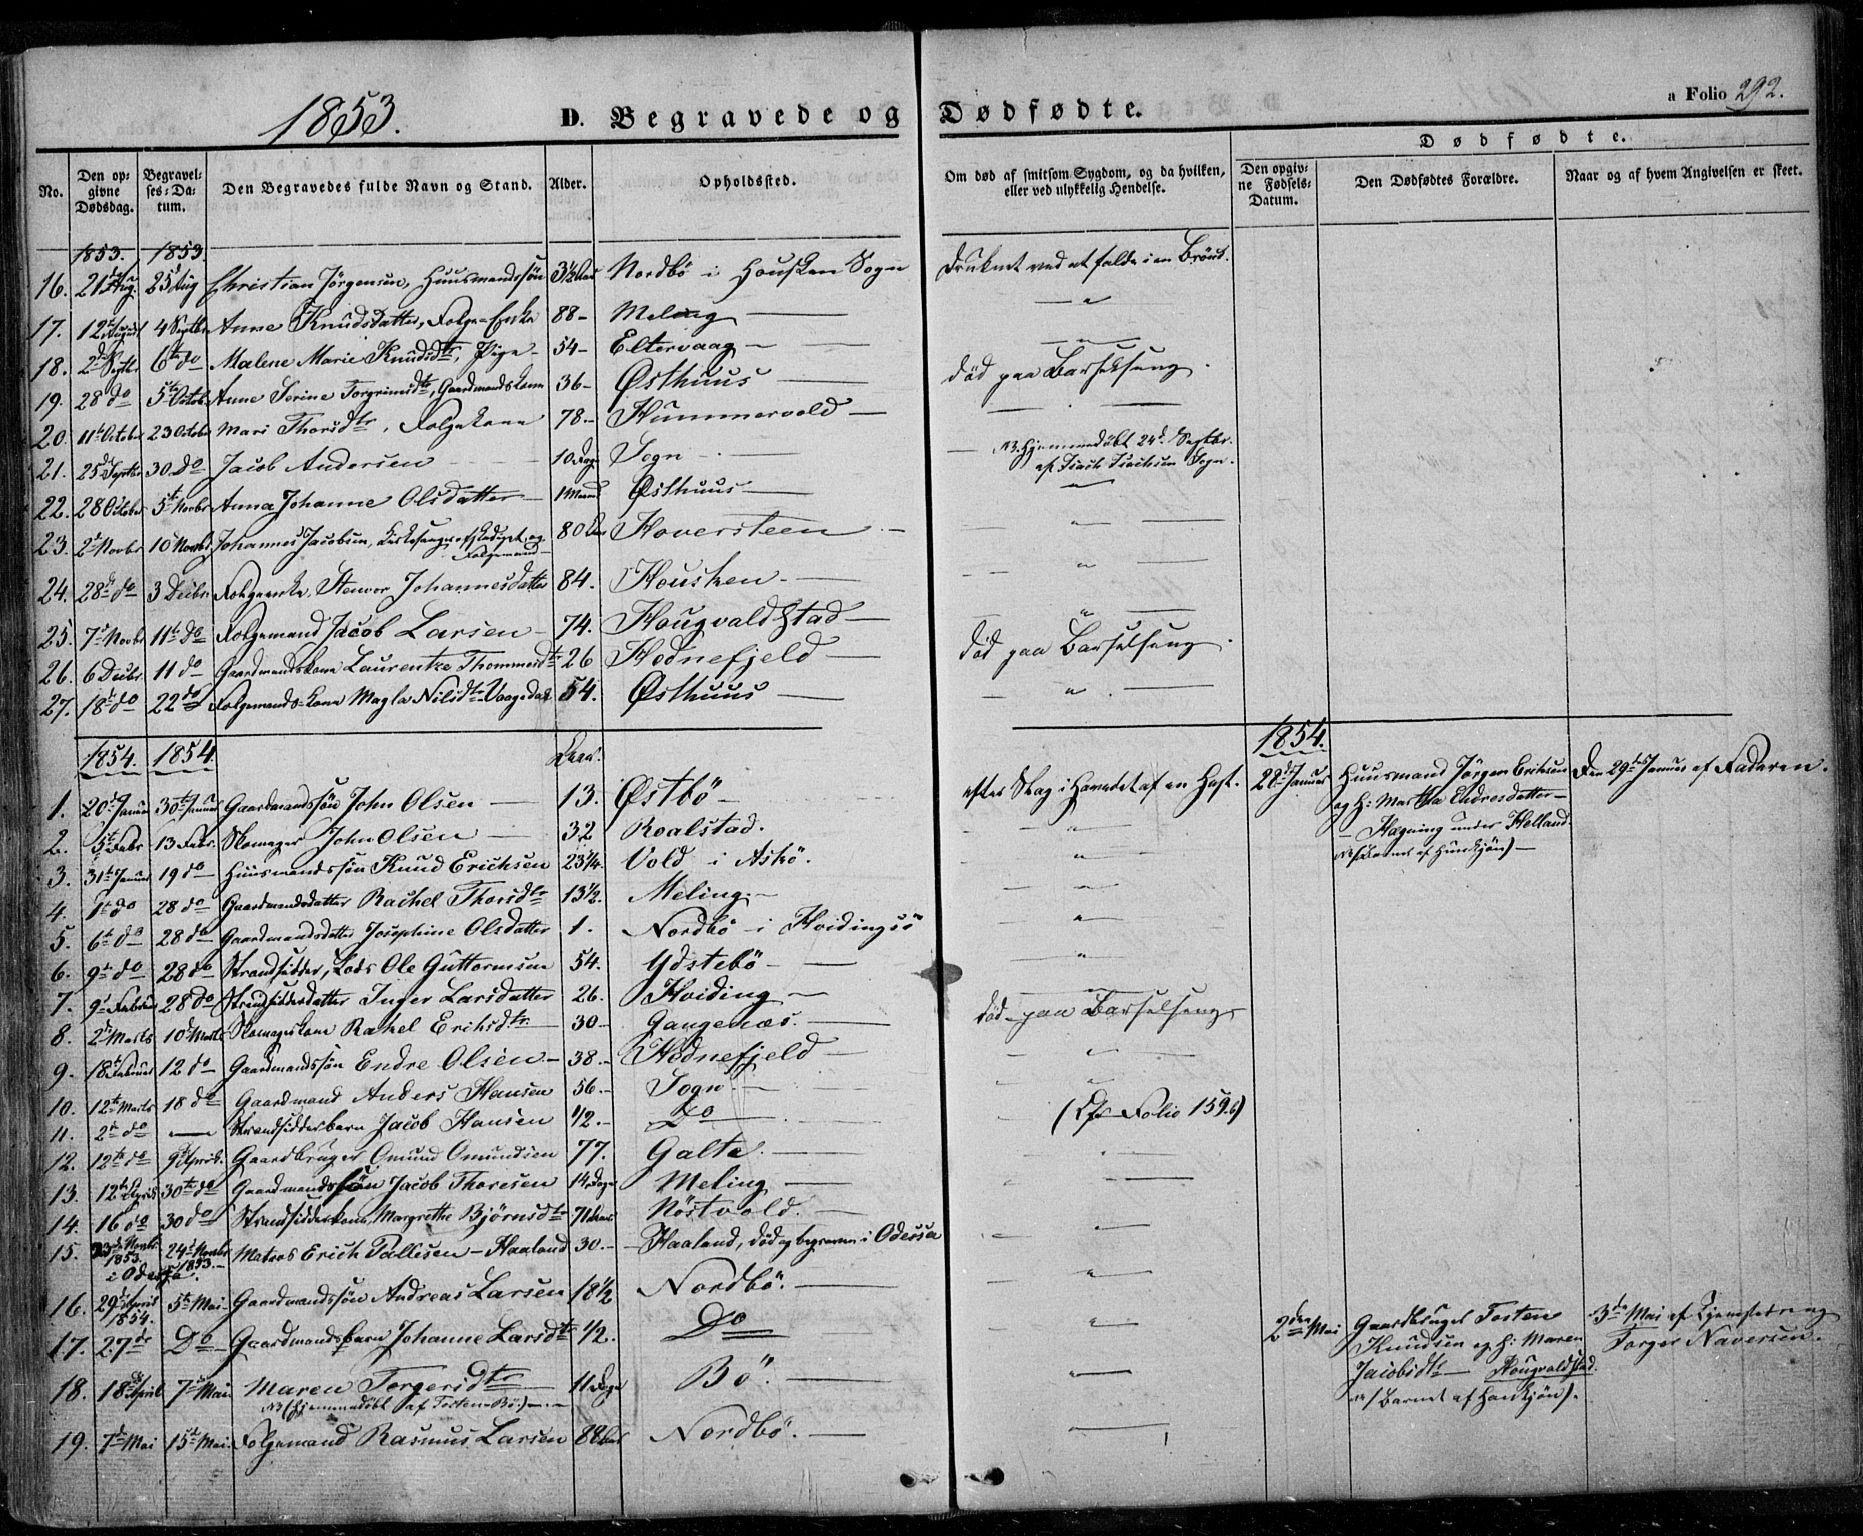 1853. D. Begravede og Dødfødte. a Folio 292.
Dødfødte.
No. Den opgivne Dødsdag. Begravelses-Datum. Den Begravedes fulde Navn og Stand. Alder. Opholdssted. Om død af smitsom Sygdom, og da hvilken, eller ved ulykkelig Hendelse. Den opgivne Fødsels-Datum. Den Dødfødtes Forældre. Naar og af hvem Angivelsen er skeet.
1853. 1853
16. 21 Aug. 25 Aug Christian Jörgensen, Huusmandssön 3½ Nordbö i Housken Sogn Druknet ved at falde i en Brönd.
17. 12 August 4 Septbr Anne Knudsdatter, Folge-Enke 88- Meling — "
18. 2 Septbr 6te do Malene Marie Knudsdtr, Pige 54- Eltervaag —
19. 28 do 5te Octob. Anne Serine Torgrimsdtr, Gaardmandskone 36- Østhuus — död paa Barselseng.
20. 11te October 23 October Mari Thorsdtr, Folgekone 78- Hummervold —
21. 25 Septbr 30. do Jacob Andersen 10 Dage Sogn — NB. Hjemmedöbt 24d. Septbr.
af Isach Isachsen Sogn.
22. 28 October 5te Novbr Anna Johanne Olsdatter 1 Maaned Østhuus — "
23. 2 Novbr 10 Novbr Johannes Jacobsen, Kirkesanger afskediget, og
Folgemand 80 Hoversteen — "
24. 28de do 3 Decbr. Folgeenke, Stenvor Johannesdatter 84. Housken — "
25. 7 Novbr 11te do Folgemand Jacob Larsen 74. Hougvaldstad — "
26. 6 Decbr. 11 do Gaardmandskone Laurentze Thommesdtr 26 Hodnefjeld — död paa Barselseng.
27. 18 do 22 do Folgemands-kone Magla Nilsdtr Vaagedal 54. Østhuus — "
1854. 1854. Aar. 1854.
1. 20 Januar 30te Januar Gaardmandssön John Olsen 13. Østbö — efter Slag i Hovedet af en Hest. 28 Januar Huusmand Jörgen Erichsen Den 29de Januar af Faderen.
og H: Martha Endresdatter
2. 5te Febr 13 Febr. Skomager John Olsen 32 Roalstad. " — Hagning under Helland.
3. 31te Januar 19 do Huusmandssön Knud Erichsen 23¼ Vold i Askö. " (Barnet af Hunkjön)
4. 1te do 28 do Gaardmandsdatter Rachel Thorsdtr 13½. Meling —
5. 6te do 28 do Gaardmandsdatter Josephine Olsdatter 1. Nordbö i Hvidingsö "
6. 9te do 28 do Strandsidder, Lods Ole Guttormsen 54. Ydstebö — "
7. 9 Februar 28 do Strandsidderdatter Inger Larsdatter 26. Hviding —
8. 2 Marts 10 Marts Skomagerkone Rakel Erichsdtr 30- Gangenæs. — död paa Barselseng
9. 18 Februar 12 do Gaardmandssön Endre Olsen 38. Hodnefjeld — "
10. 12te Marts 18 do Gaardmand Anders Hansen 56. Sogn — "
11. 2 do — Strandsidderbarn Jacob Hansen ½. Do (Cfr Folio 159.6)
12. 12te do 9 April. Gaardbruger Omund Omundsen 77. Galta. —
13. 12te April 30te do Gaardmandssön Jacob Thoresen 14 Dage Meling — "
14. 16 do 30 do Strandsidderkone, Margrethe Björnsdtr 71 Nöstvold. —
15. 23 Novbr. 1853. i Odessa. 24 Novbr 1853. Matros Erich Pallesen - Haaland 30. Haaland, död og begraven i Odessa
16. 29 April 1854. 5te Mai Gaardmandssön Andreas Larsen 18½ Nordbö. — "
17. 27de Do Gaardmandsbarn Johanne Larsdtr ½. Do " 2den Mai Gaardbruger Tosten 3de Mai af og
Knudsen og H: Maren Torger Naversen.
18. 18 April 7 Mai. Maren Torgersdtr 11 Dage Bö. — Jacobsdtr — Hougvaldstad.
NB (hjemmedöbt af Tosten Bö) (Barnet af Hankjön).
19. 7 Mai 15te Mai Folgemand Rasmus Larsen 88 Nordbö. —